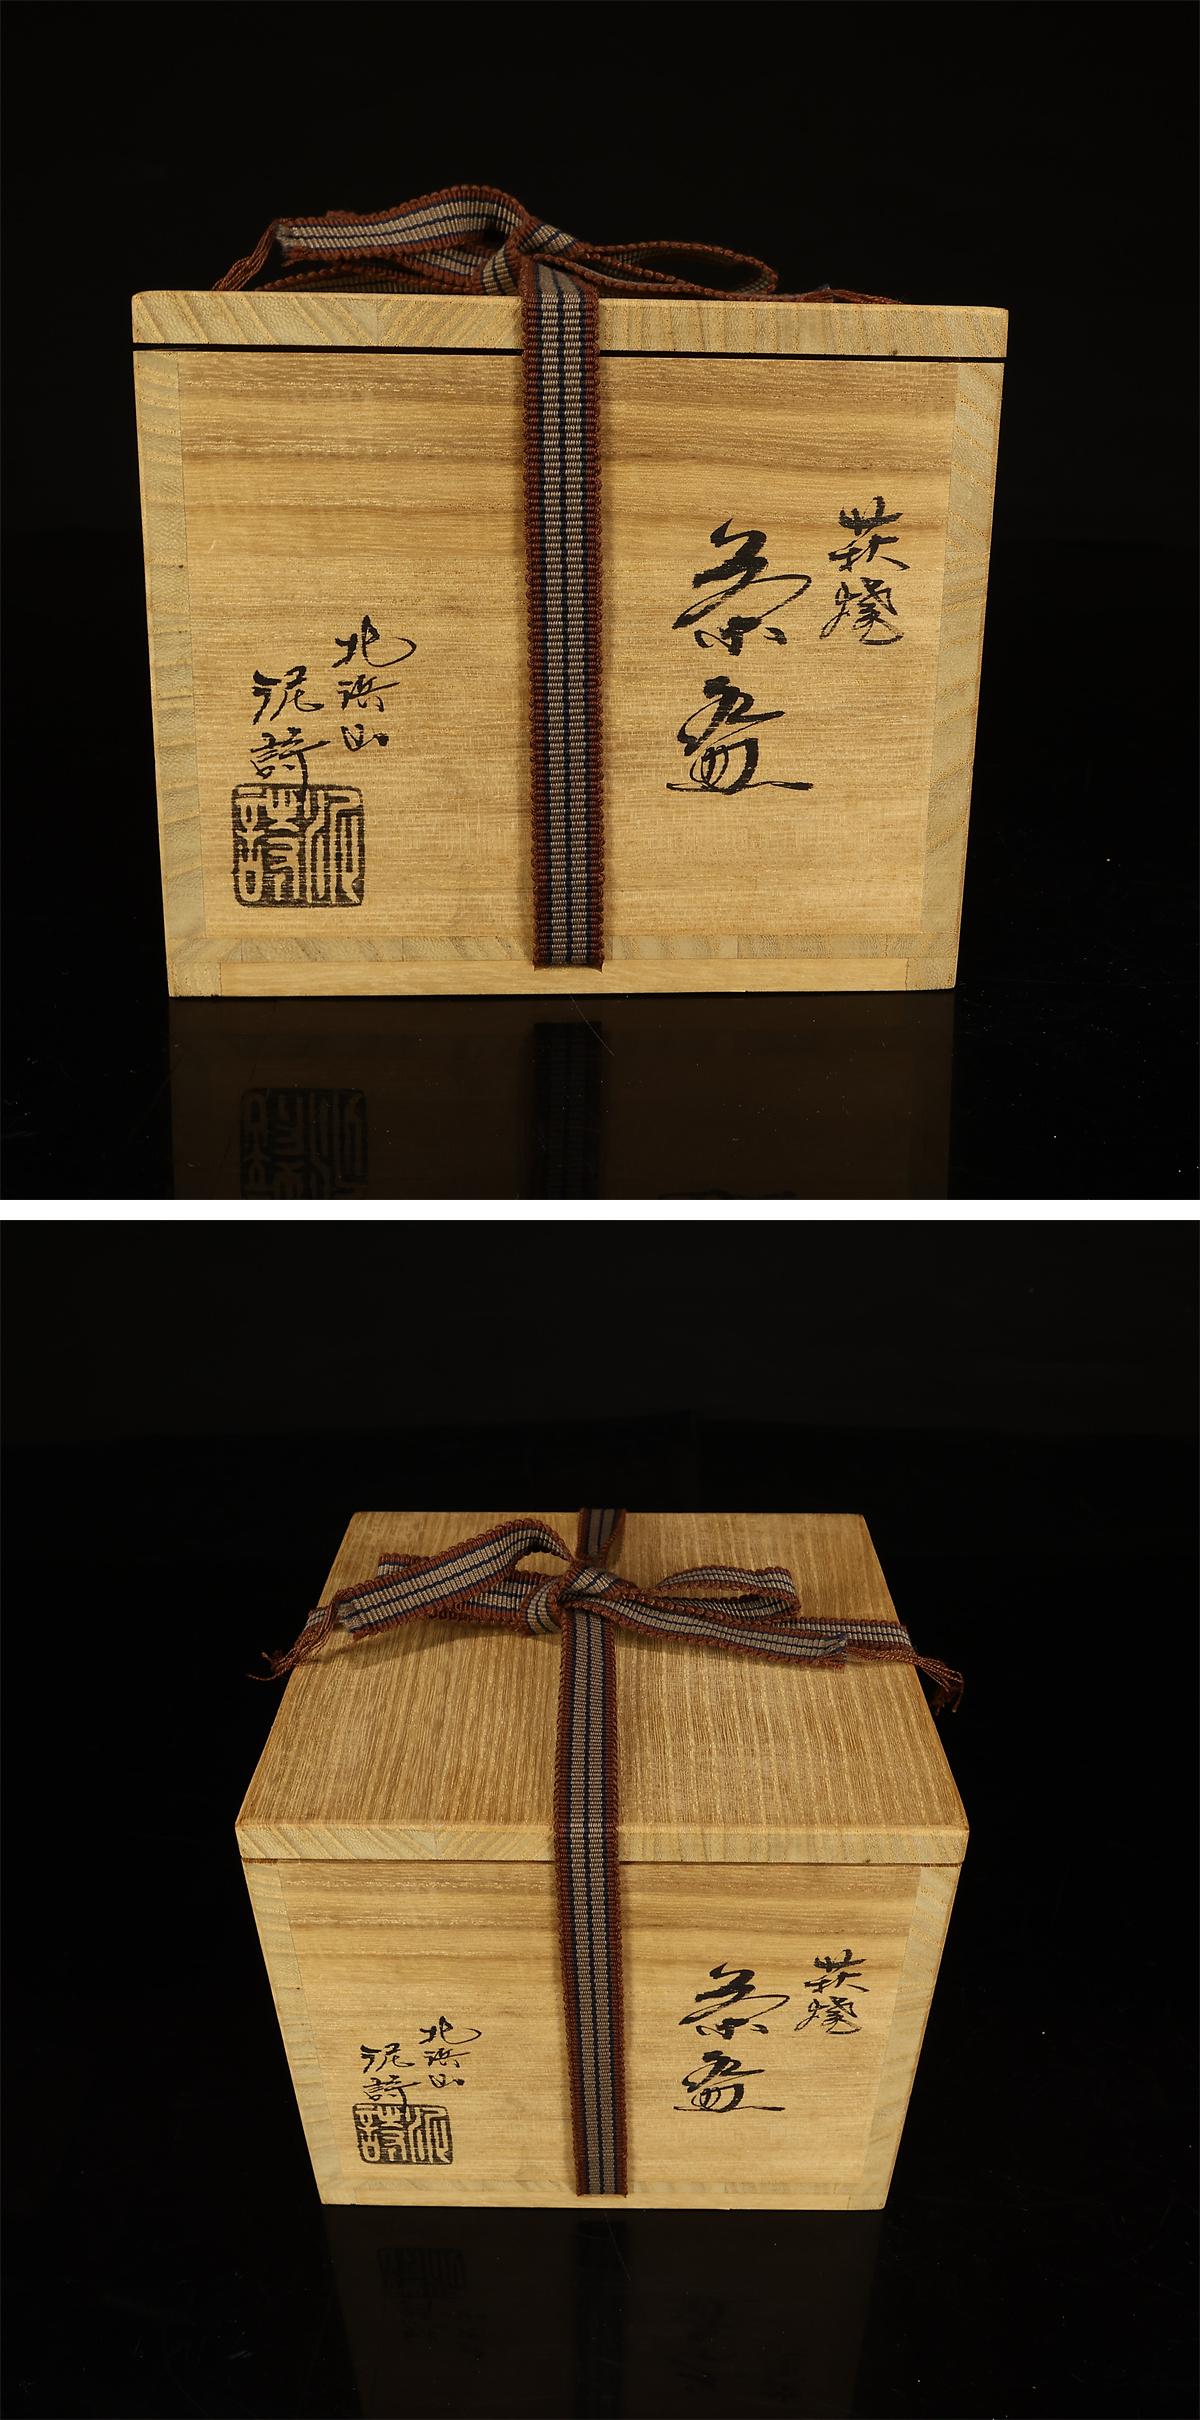 萩焼
茶盌
北浜山
泥詩
泥詩
萩焼
茶盌
北浜山
泥詩
泥詩